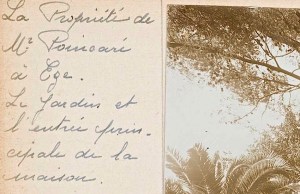 La Propriété de
Mr Poincaré
à Eze.
Le Jardin et
l'entrée prin-
cipale de la
maison.